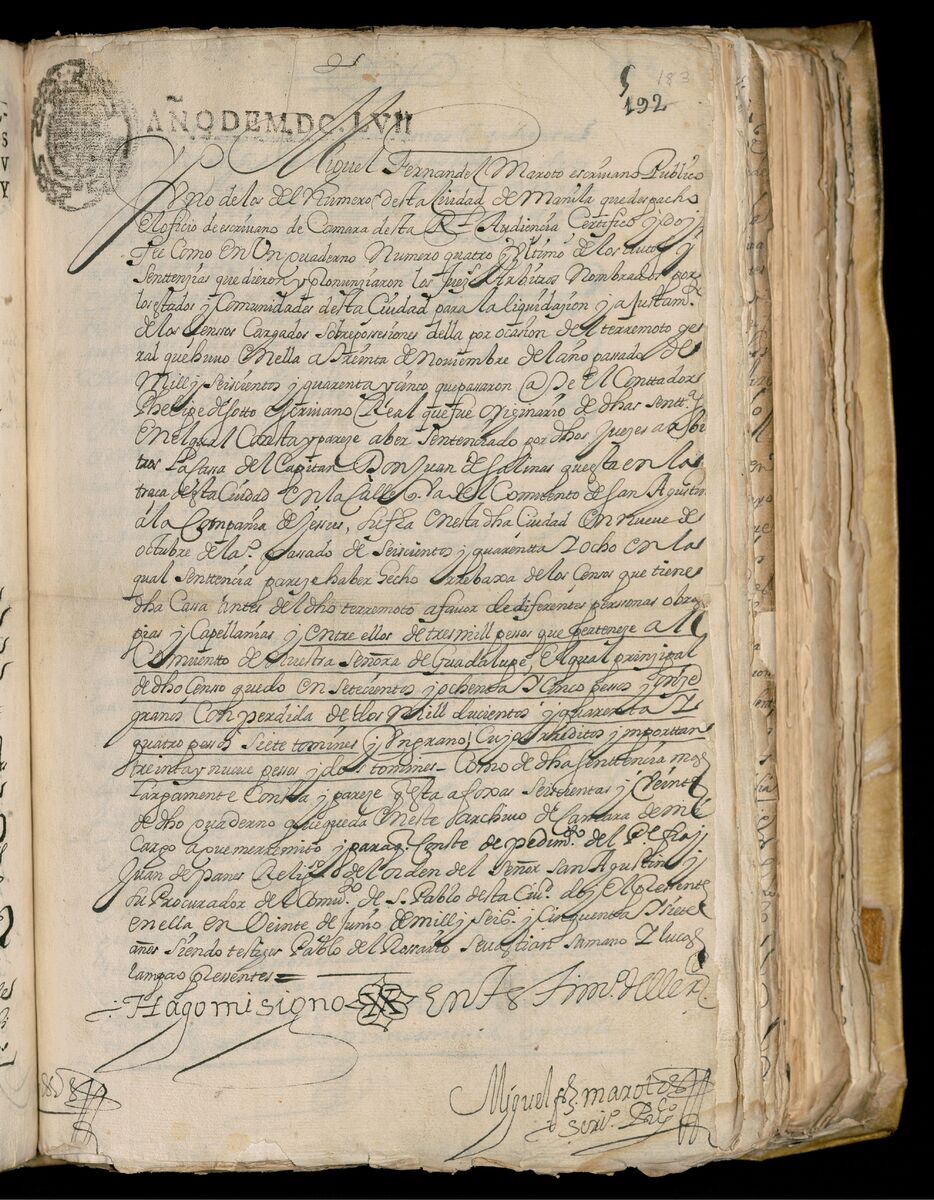 183
192
AÑO DE M.DC.LVII
Yo Miguel Fernandez Maroto escrivano Publico
Uno de los del Numero desta Ciudad de Manila que despacho
el oficio de escrivano de Camara desta Rl Audiencia Certifico y doy
fee como en Un quaderno Numero quatro y Ultimo de los autos y
Senttençias que dieron y Pronunçiaron los Juezes Arbitros Nombrados por
los estados y Comunidades desta Ciudad para la liquidaçion y ajustamo
de los Censos Cargados sobre possesiones della por ocasion del terremoto gene
ral que huvo en ella a treinta de Noviembre del año passado de
Mill y seiscientos y quarenta y cinco que passaron ante el Conttador
Phelipe de sotto escrivano Real que fue originario de dhas Senttas
en el qual Consta y pareze aber Sentenciado por dhos Juezes arbi
tros La Cassa del Capitan Don Juan de Salinas que esta en la
traca desta Ciudad en la Calle q Va del Comvento de San Agustin
á la Compañia de Jesus, su fha en esta dha Ciudad en nueve de
octubre del aº passado de Seiscientos y quarentta y ocho en la
qual Senttencia pareze haber hecho Rebaxa de los Censos que tiene
dha Cassa antes del dho terremoto a favor de diferentes personas obras
pias y Capellanias y entre ellos de tres mill pessos que perteneze a el
Comvento de Nuestra Señora de Guadalupe, el qual prinçipal
de dho Censo quedo en Setecientos y ochenta y Cinco pesos y onze
granos Con perdida de dos Mill ducientos y quarenta y
quatro pesos Siete tomines y Un grano, Cuyos Reditos ymporttan
treinta y nueve pessos y dos tomines – Como de dha senttencia mas
Largamente Consta y pareze q esta a foxas Seiscientas y Veinte
de dho quaderno que queda en este archivo de Camara de mi
Cargo a que me rremito y para q Conste de pedimto del Pe fray
Juan de panes Religº del orden del Señor San Agustin y
su Procurador del Comvto de S. Pablo desta Ciud doy el Pressente
en ella en Veinte de Junio de mill y Seisº y Cinquenta y siete
años siendo testigos Pablo del Rossario Sevastian Samano y lucas
lampao Pressentes =
Hago mi signo En Tº Timº de Verd.
Miguel frz. maroto
scrivº Puco